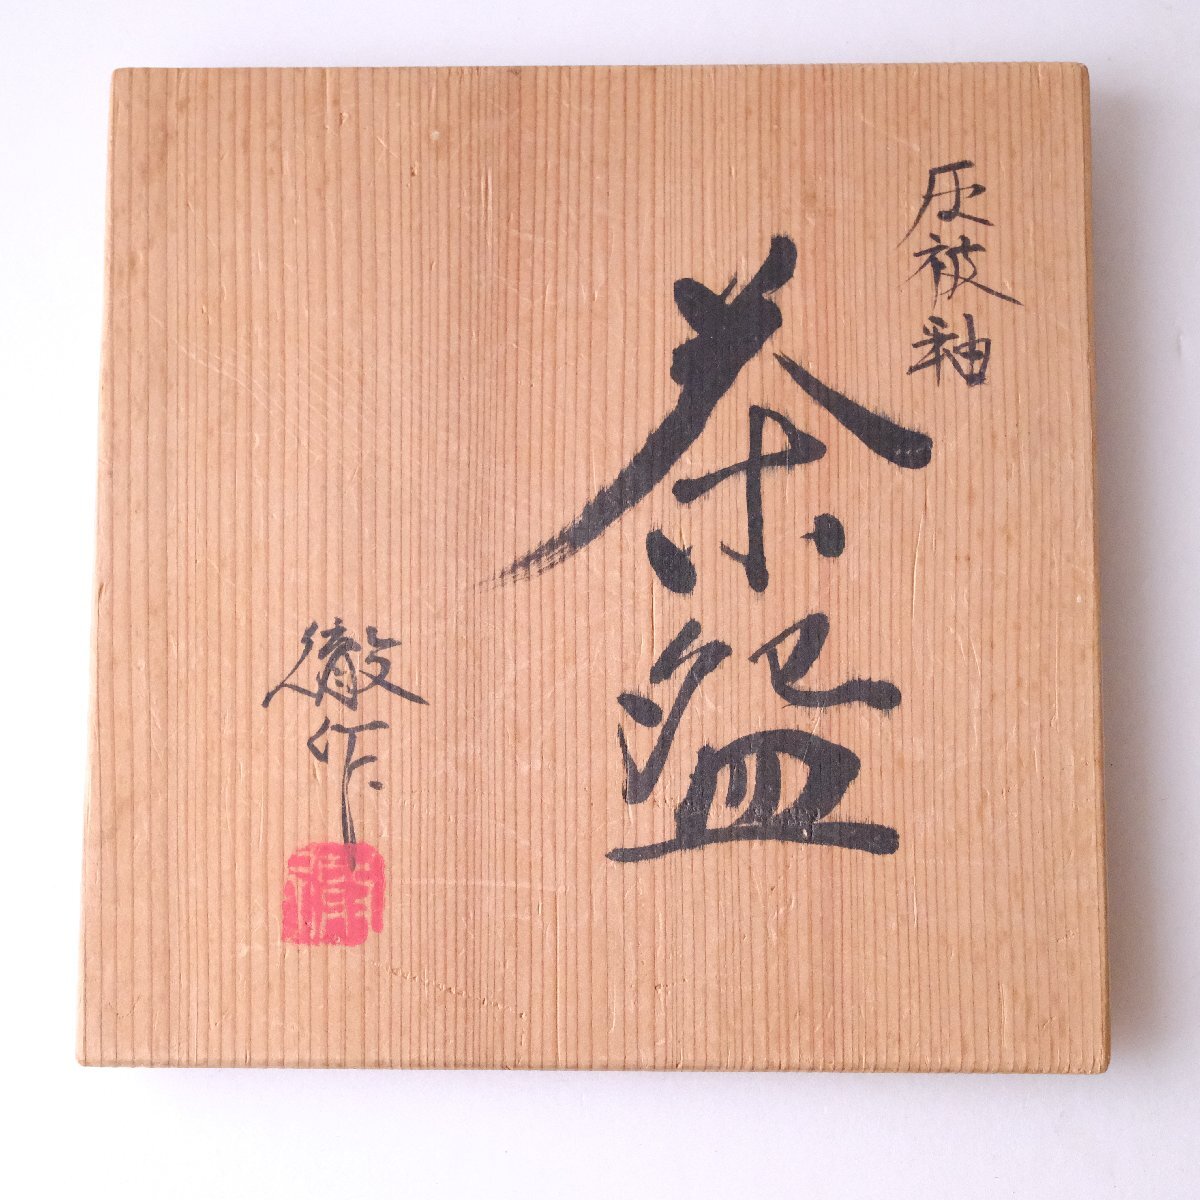 灰被釉
茶盌
徹作